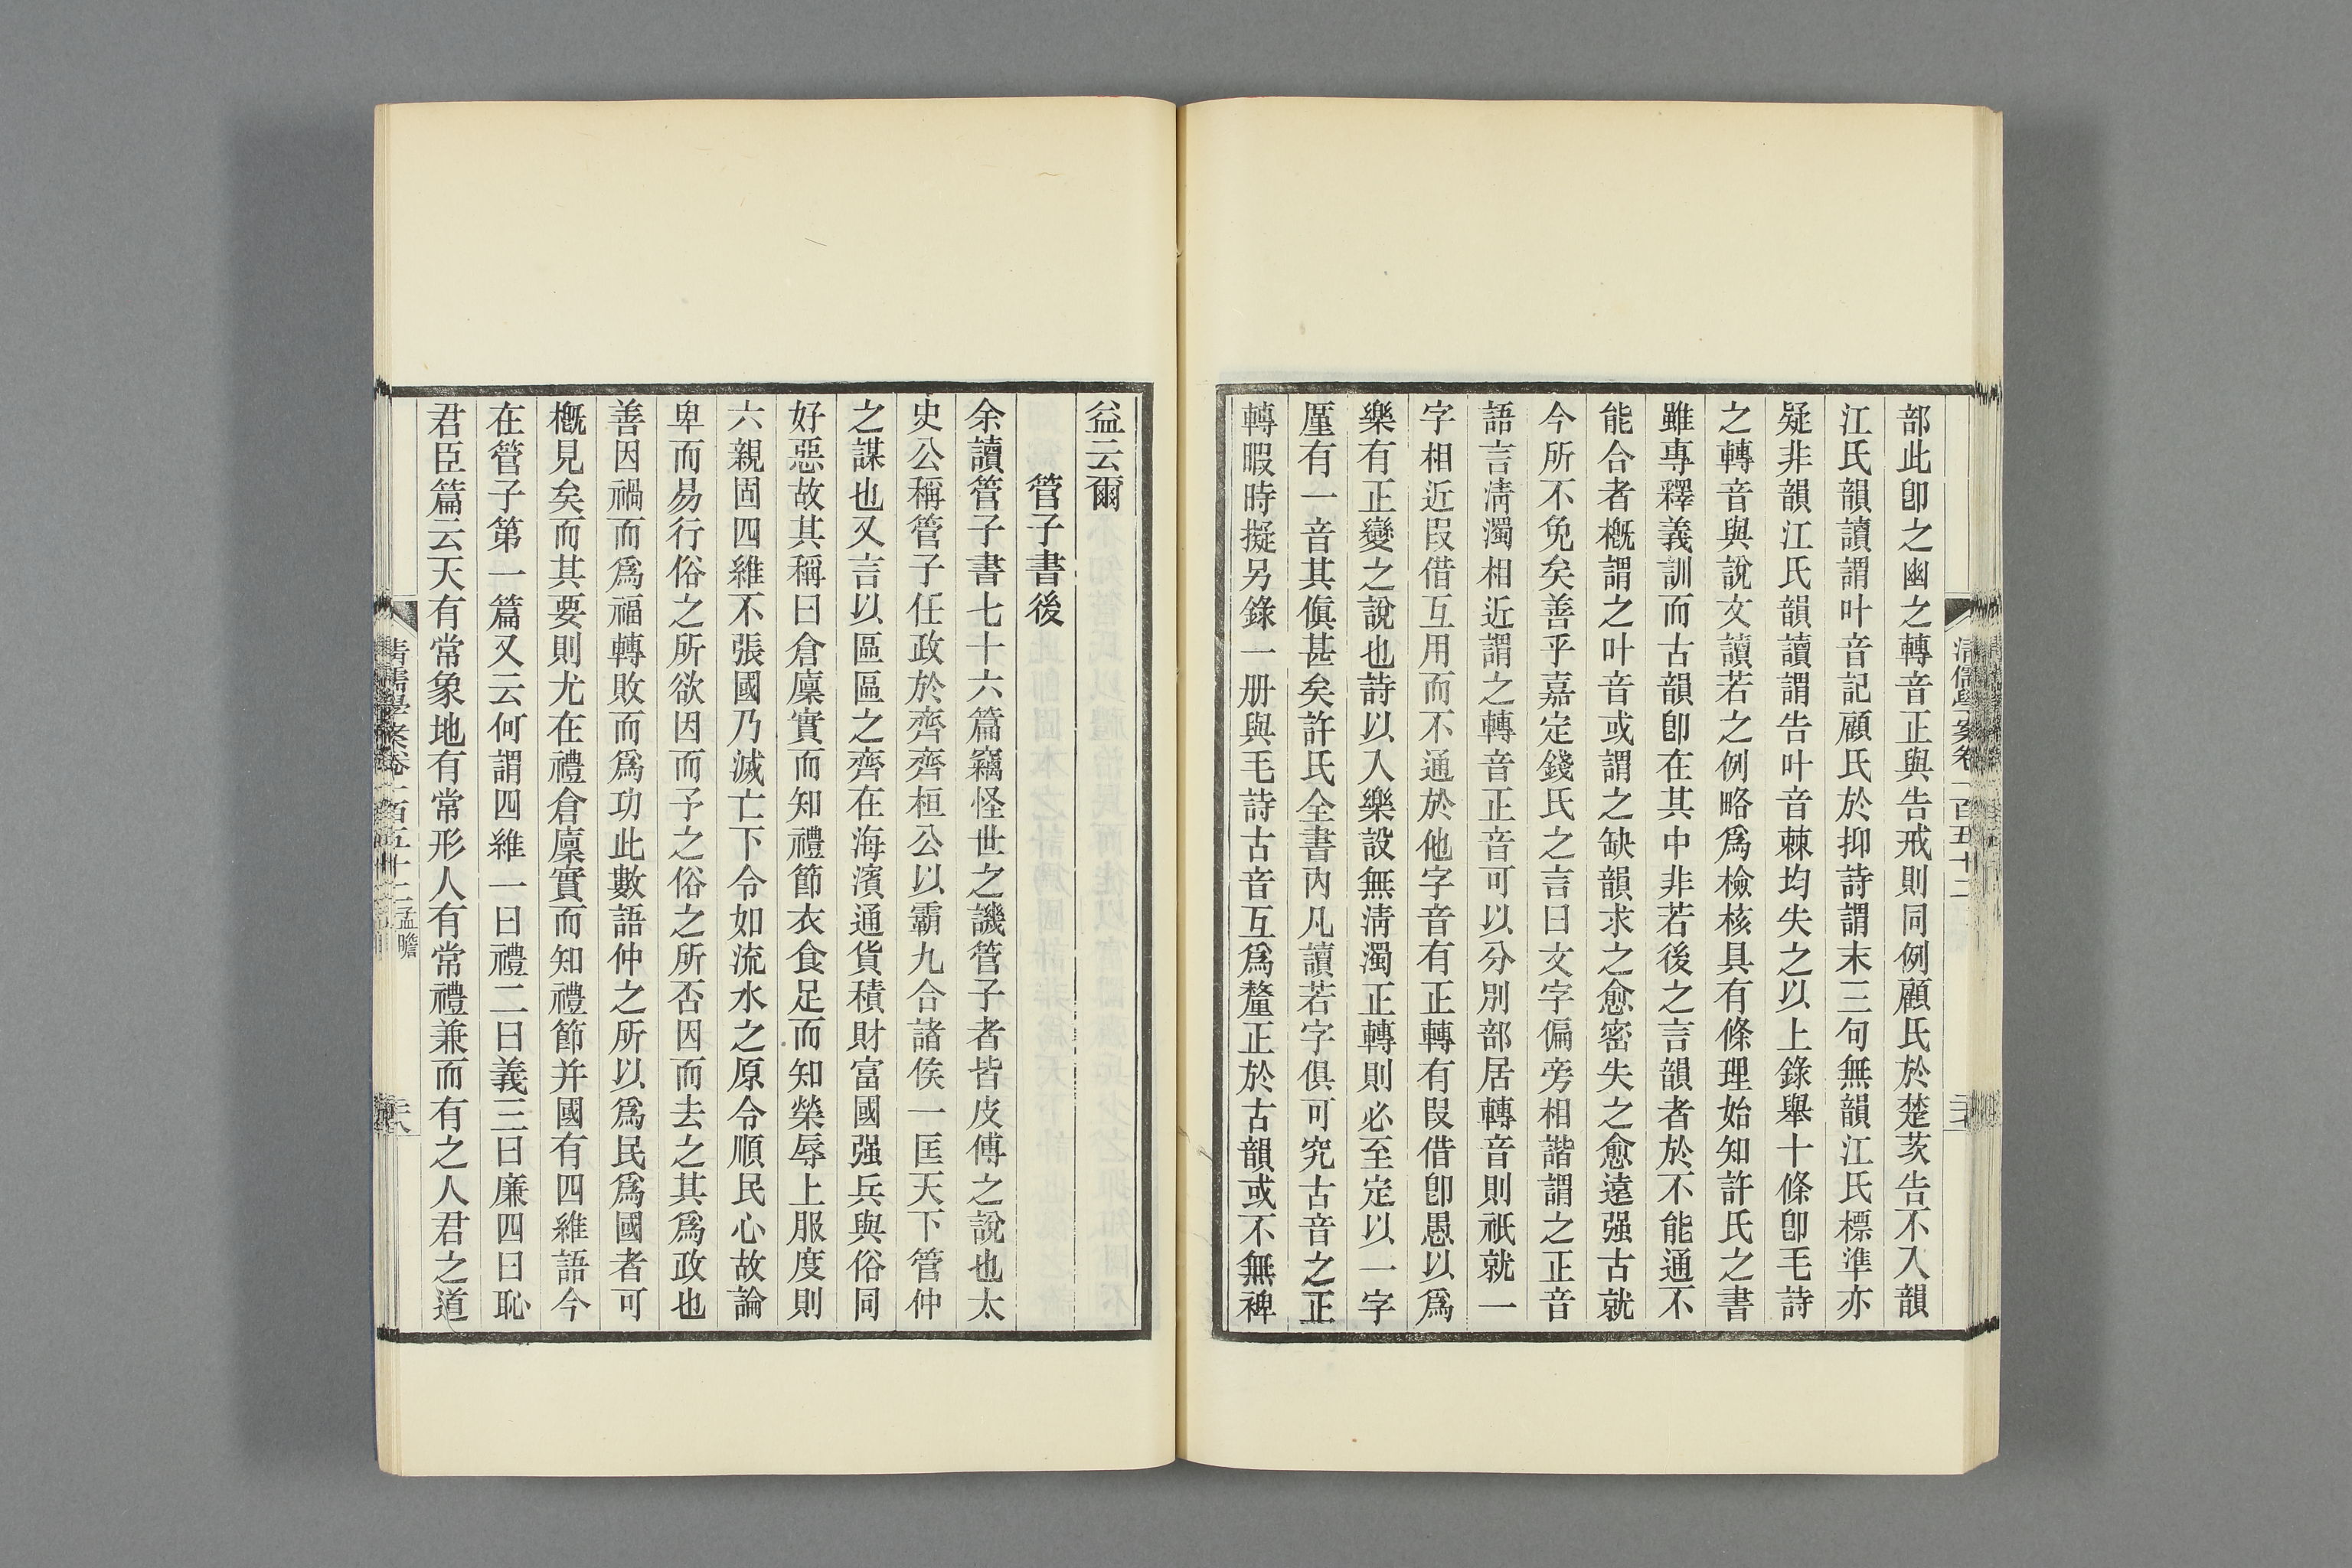 部此卽之幽之轉音正與告戒則同例顧氏於楚茨告不入韻
江氏韻讀謂叶音記顧氏於抑詩謂末三句無韻江氏標準亦
疑非韻江氏韻讀謂告叶音棘均失之以上錄舉十條卽毛詩
之轉音與說文讀若之例略爲檢核具有條理始知許氏之書
雖專釋義訓而古韻卽在其中非若後之言韻者於不能通不
能合者槪謂之叶音或謂之缺韻求之愈密失之愈遠强古就
今所不免矣善乎嘉定錢氏之言曰文字偏旁相諧謂之正音
語言淸濁相近謂之轉音正音可以分別部居轉音則祇就一
字相近叚借互用而不通於他字音有正轉有叚借卽愚以爲
樂有正變之說也詩以入樂設無淸濁正轉則必至定以一字
厪有一音其傎甚矣許氏全書內凡讀若字俱可究古音之正
轉暇時擬另錄一册與毛詩古音互爲釐正於古韻或不無裨
淸儒學案卷一百五十二
益云爾
管子書後
余讀管子書七十六篇竊怪世之譏管子者皆皮傅之說也太
史公稱管子任政於齊齊桓公以霸九合諸侯一匡天下管仲
之謀也又言以區區之齊在海濱通貨積財富國强兵與俗同
好惡故其稱曰倉廩實而知禮節衣食足而知榮辱上服度則
六親固四維不張國乃滅亡下令如流水之原令順民心故論
卑而易行俗之所欲因而予之俗之所否因而去之其爲政也
善因禍而爲福轉敗而爲功此數語仲之所以爲民爲國者可
槪見矣而其要則尤在禮倉廩實而知禮節幷國有四維語今
在管子第一篇又云何謂四維一曰禮二曰義三曰廉四曰恥
君臣篇云天有常象地有常形人有常禮兼而有之人君之道
淸儒學案卷一百五十二 孟瞻